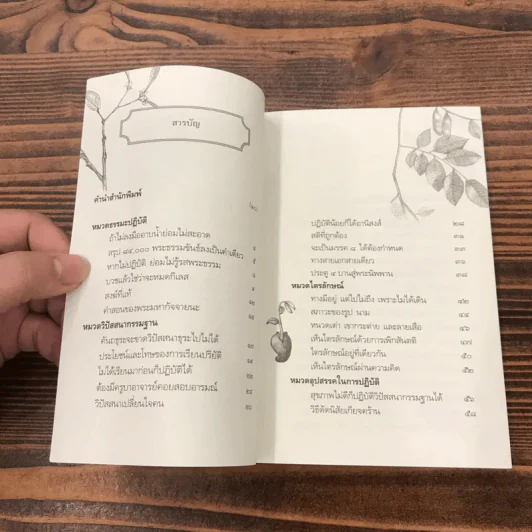 สารบัญ
คำนำสำนักพิมพ์
หมวดธรรมะปฏิบัติ
ถ้าไม่ลงมืออาบน้ำย่อมไม่สะอาด
สรุป ๘๔,๐๐๐ พระธรรมขันธ์ลงเป็นคำเดียว
หากไม่ปฏิบัติ ย่อมไม่รู้รสพระธรรม
บวชแล้วใช่ว่าจะหมดกิเลส
สงฆ์ที่แท้
คำสอนของพระมหากัจจายนะ
หมวดวิปัสสนากรรมฐาน
คันถธุระจะขาดวิปัสสนาธุระไปไม่ได้
ประโยชน์และโทษของการเรียนปริยัติ
ไม่ได้เรียนมาก่อนก็ปฏิบัติได้
ต้องมีครูบาอาจารย์คอยสอบอารมณ์
วิปัสสนาเปลี่ยนใจคน
ปฏิบัติน้อยก็ได้อานิสงส์ ๒๘
สติที่ถูกต้อง
จะเป็นมรรค ๘ ได้ต้องกำหนด
ทางสายเอกสายเดียว
ประตู ๔ บานสู่พระนิพพาน ๓๘
หมวดไตรลักษณ์
ทางมีอยู่ แต่ไปไม่ถึง เพราะไม่ได้เดิน ๔๒
สภาวะของรูป นาม ๔๔
หนวดเต่า เขากระต่าย และลายเสือ ๔๖
เห็นไตรลักษณ์ด้วยการเพิกสันตติ ๔๗
ไตรลักษณ์อยู่ที่เดียวกัน ๕๐
เห็นไตรลักษณ์ผ่านความคิด ๕๒
หมวดอุปสรรคในการปฏิบัติ
สุขภาพไม่ดีก็ปฏิบัติวิปัสสนากรรมฐานได้ ๕๖
วิธีดัดนิสัยเกียจคร้าน ๕๘